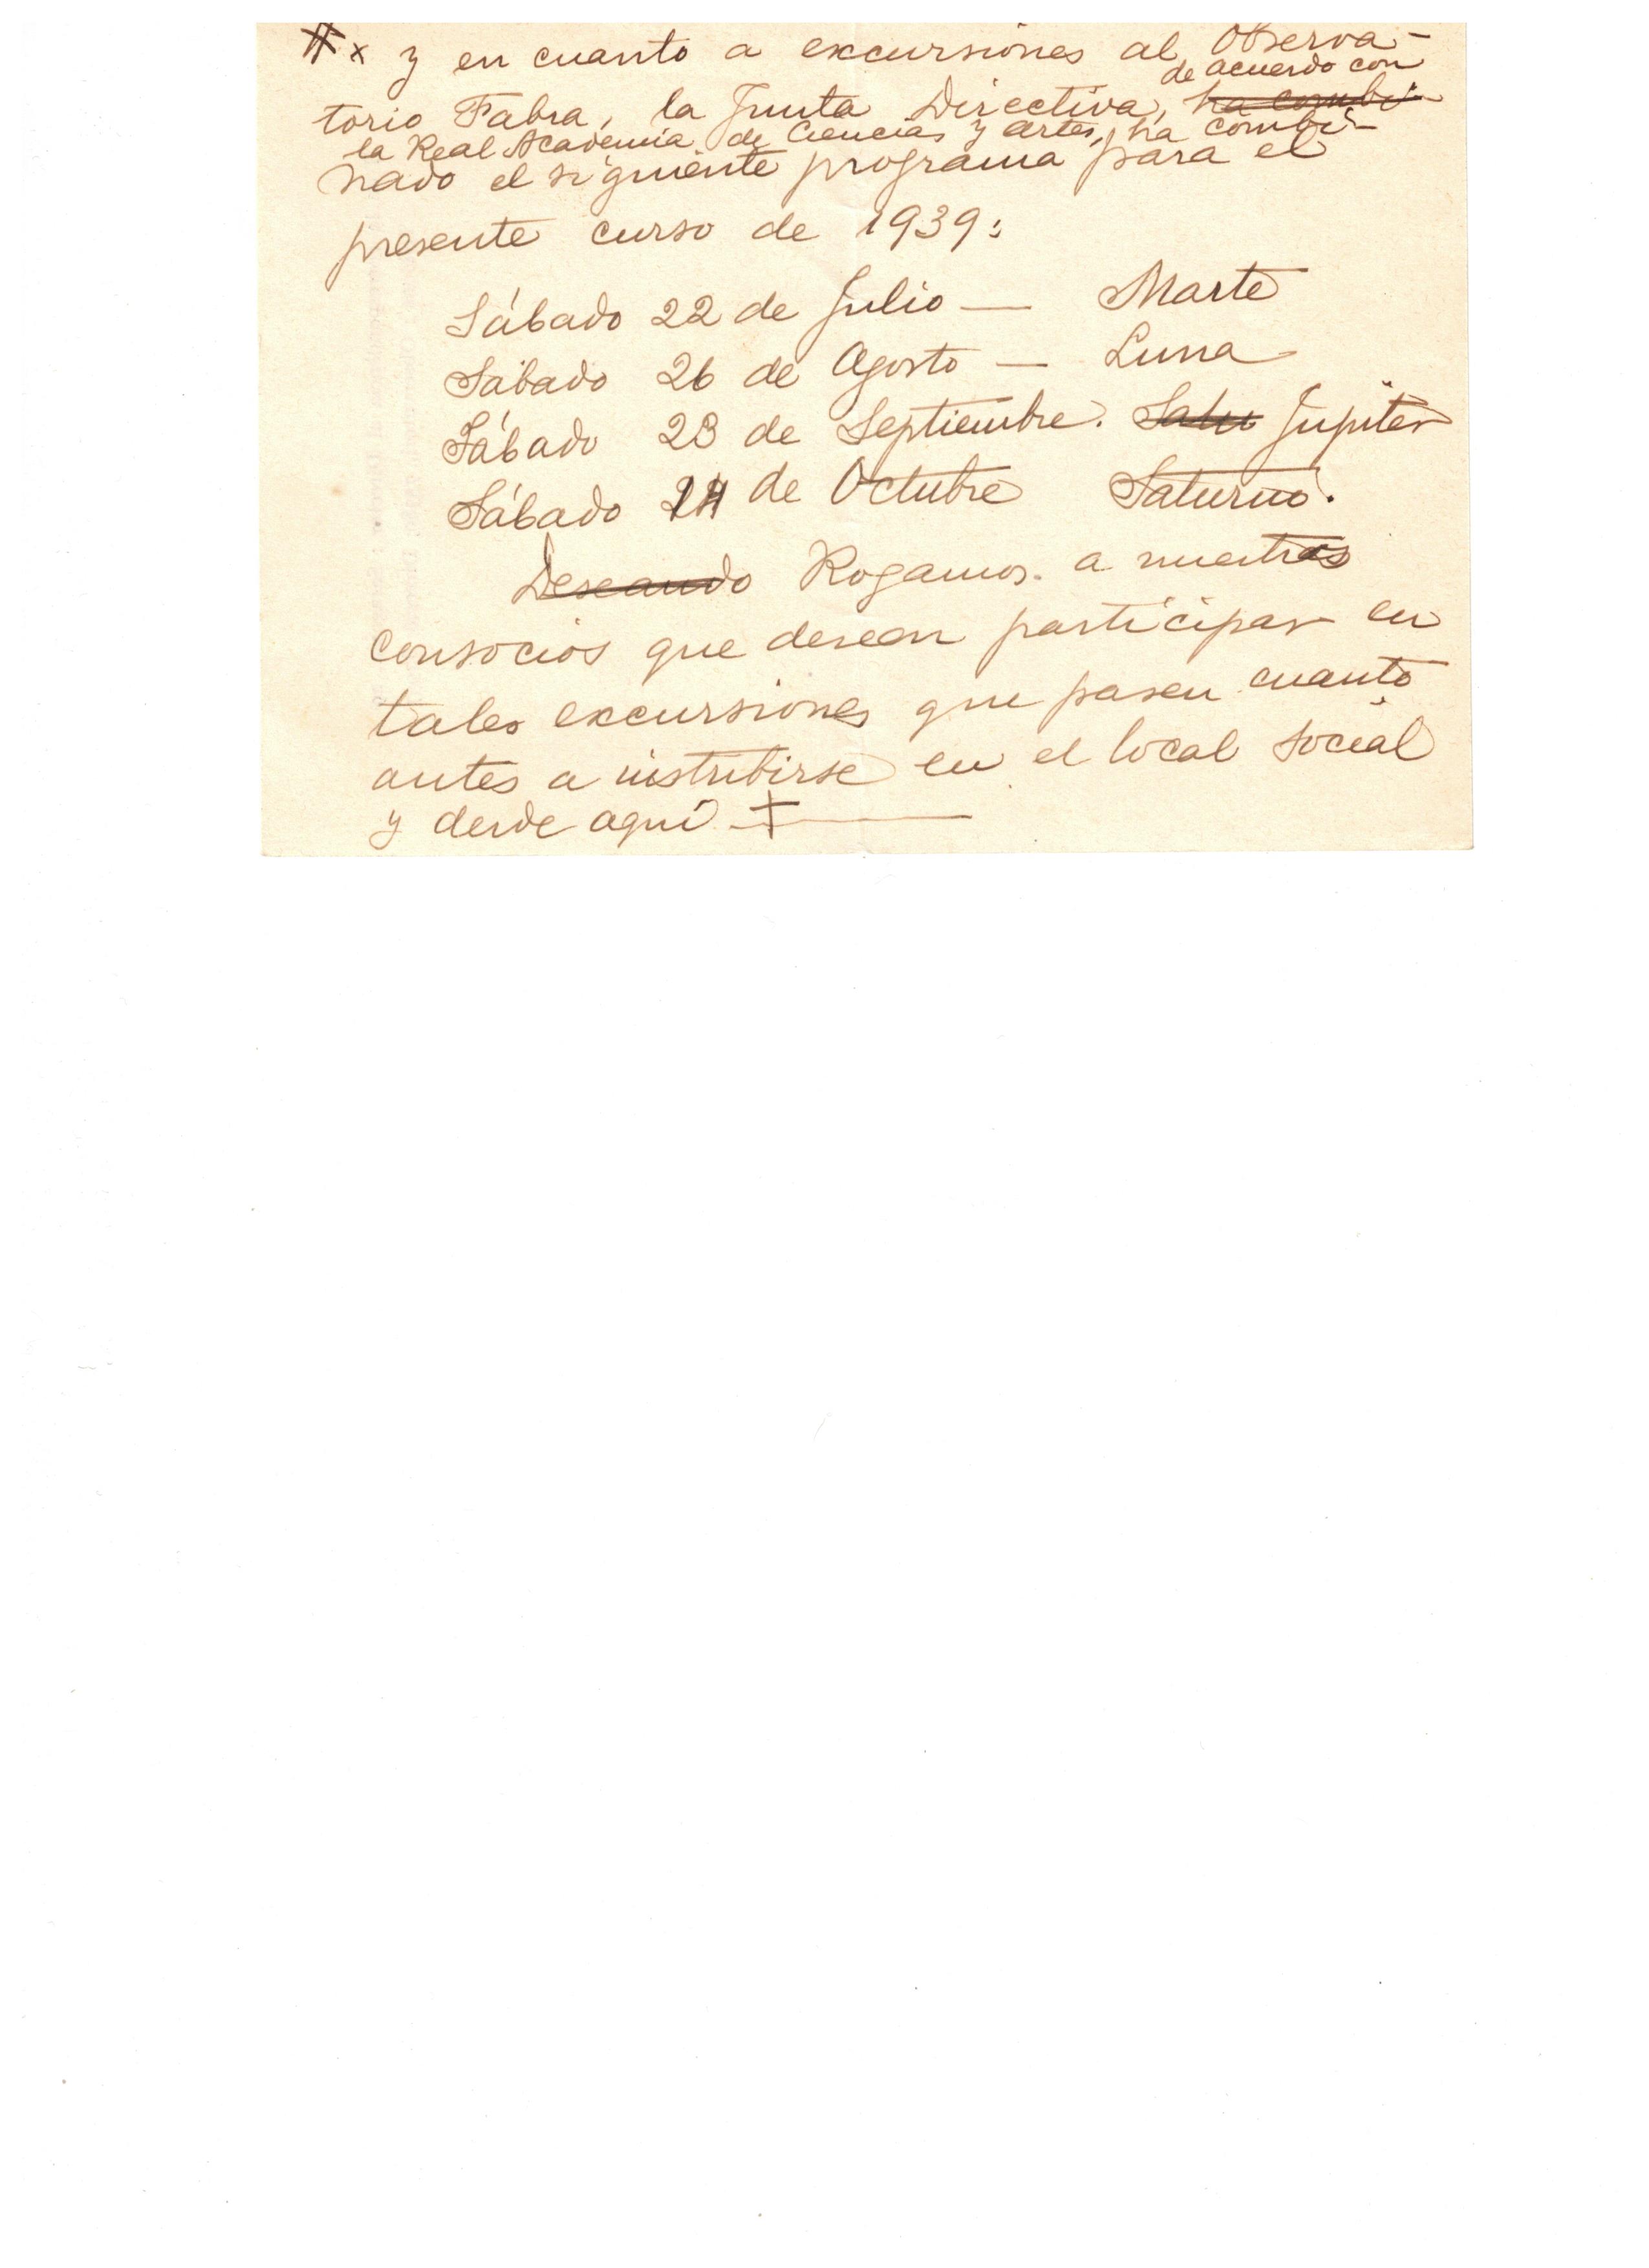 x y en cuanto a excursiones al Observa-
de acuerdo con
torio Fabra, la Junta Directiva, ha combi-
la Real Academia de Ciencias y Artes, ha combi-
nado el siguiente programa para el
presente curso de 1939:
Sábado 22 de Julio — Marte
Sábado 26 de Agosto — Luna
Sábado 23 de Septiembre. Satu Jupiter
Sábado de Octubre Saturno.
Deseando Rogamos. a nuestros
consocios que deseen participar en
tales excursiones que pasen cuanto
antes a instribirse en el local social
y desde aquí